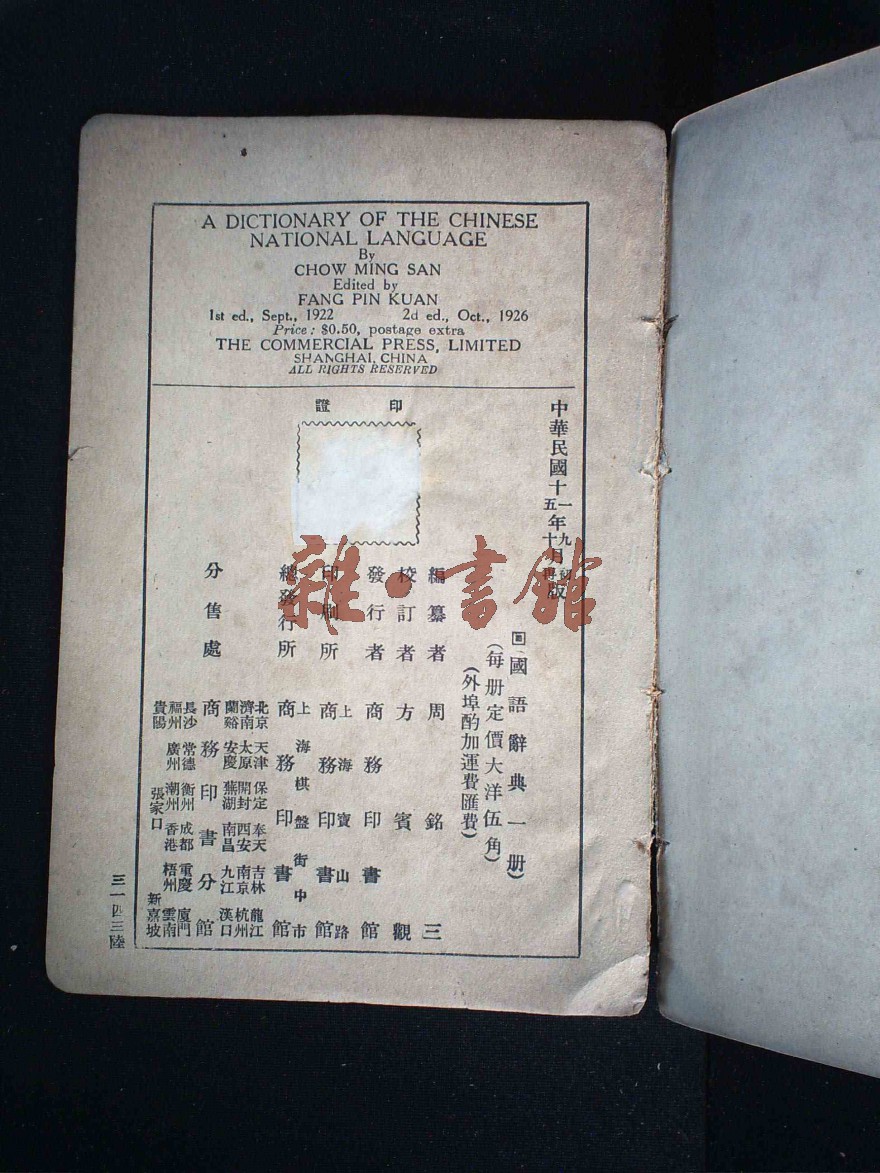 A DICTIONARY OF THE CHINESE
NATIONAL LANGUAGE
By
CHOW MING SAN
Edited by
FANG PIN KUAN
1st ed., Sept., 1922 2d ed., Oct., 1926
Price: $0.50, postage extra
THE COMMERCIAL PRESS, LIMITED
SHANGHAI, CHINA
ALL RIGHTS RESERVED
印證
中華民國十一年九月初版
五十再
國語辭典一册)
(每册定價大洋伍角)
(外埠酌加運費匯費)
編纂者 周銘三
校訂者 方賓觀
發行者 商務印書館
印刷所 上海寶山路 商務印書館
總發行所 上海棋盤街中市 商務印書館
分售處 商務印書分館
北京 天津 保定 奉天 吉林 龍江
濟南 太原 開封 西安 南京 杭州
蘭谿 安慶 蕪湖 南昌 九江 漢口
長沙 常德 衡州 成都 重慶 廈門
福州 廣州 潮州 香港 梧州 雲南
貴陽 張家口 新嘉坡
三一四三陸
雜·書館